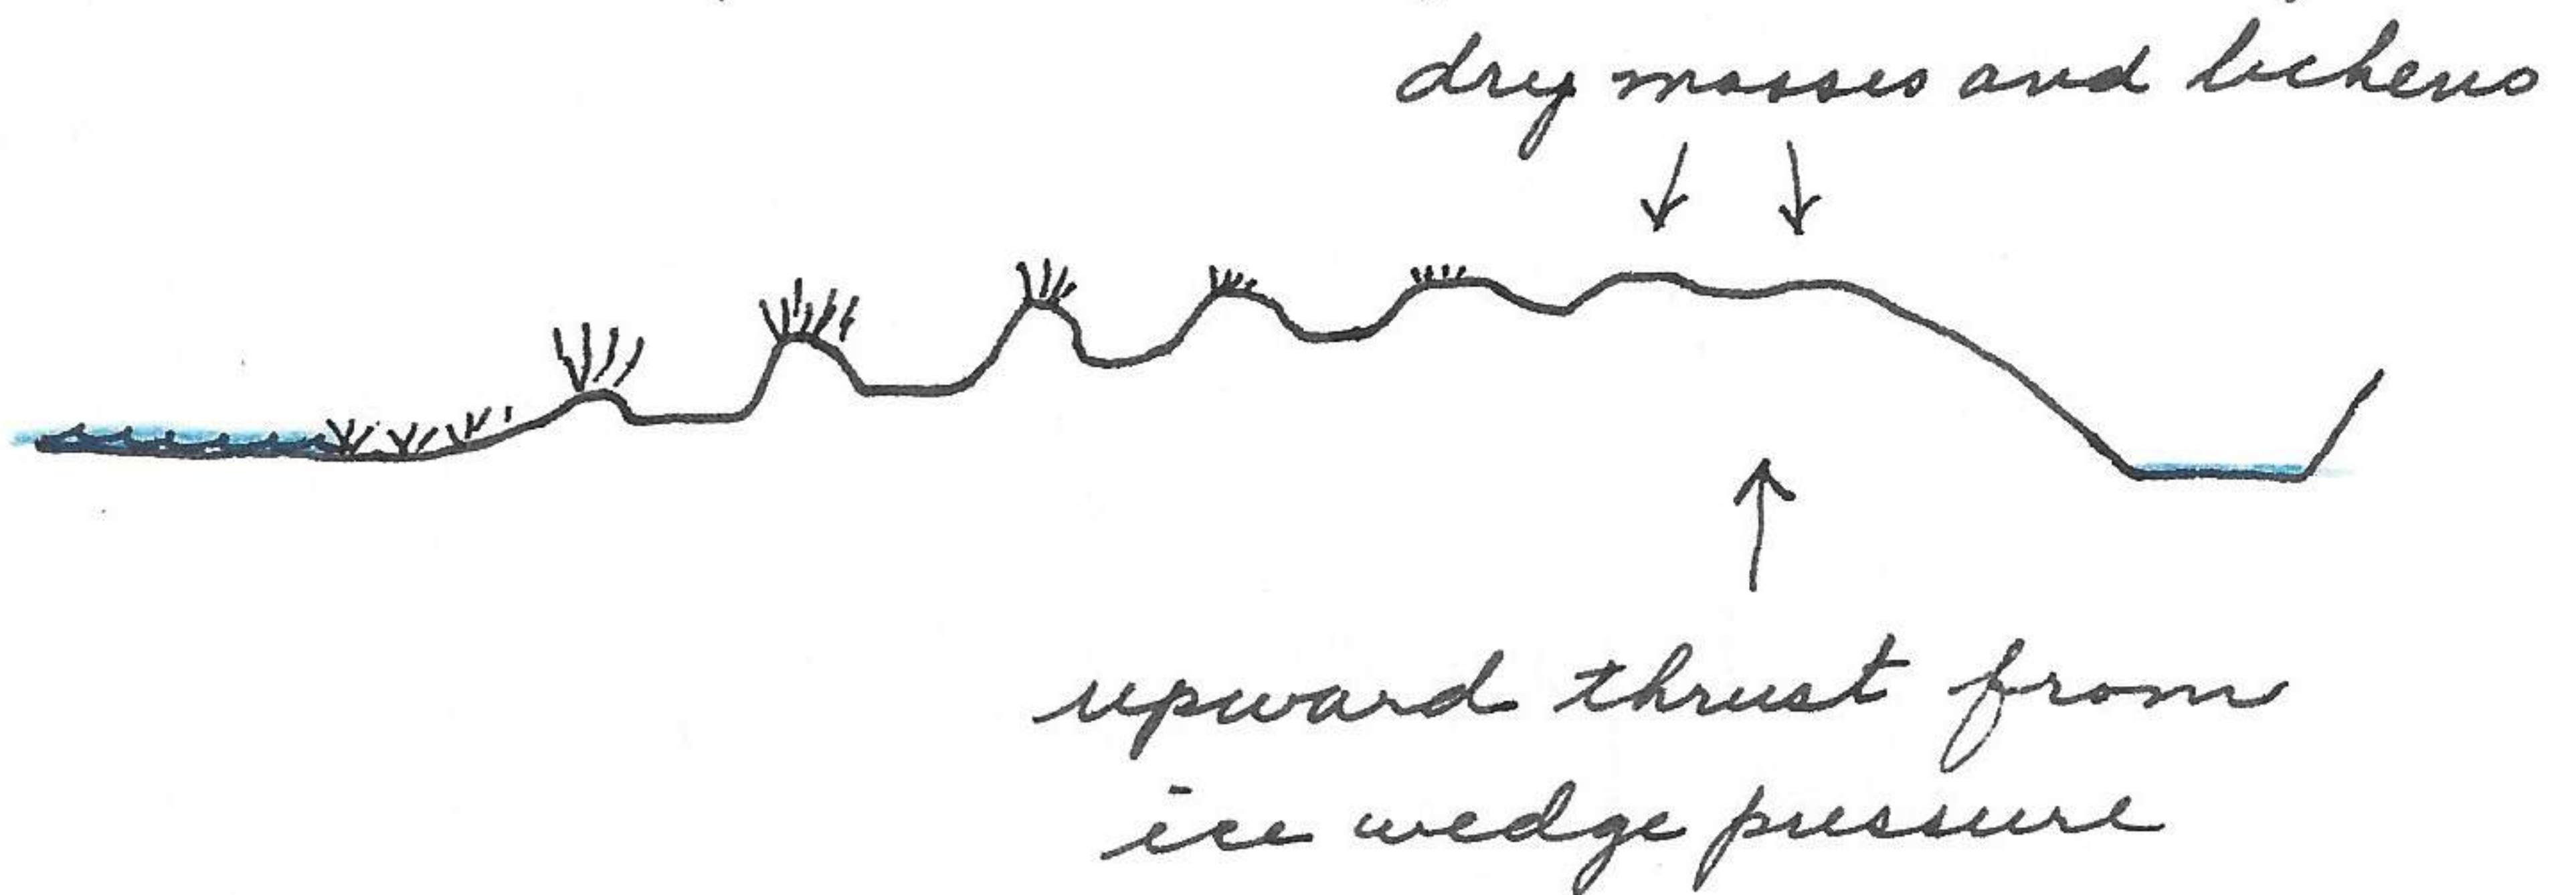 dry mosses and lichens
upward thrust from
ice wedge pressure